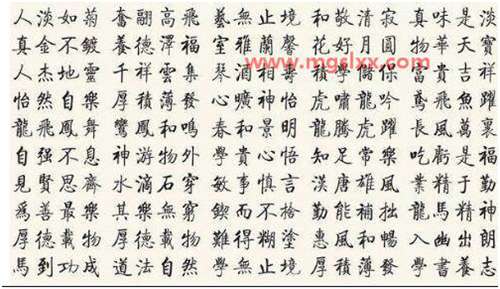 人淡如菊 奮翮高飛 藝無止境 和敬清寂 真味是淡
真金不鍍 養德澤福 室雅蘭馨 花好月圓 物華天寶
www.mgslxx.com
人杰地靈 千祥雲集 琴酒相 學儲 富貴吉祥
怡然自樂 厚積薄發 心曠神怡 虎嘯龍吟 鳶飛魚躍
龍飛鳳舞 鸞鳳和鳴 春和景明 龍騰虎躍 長風萬裏
自强不息 神游物外 學貴心悟 知足常樂 吃虧是福
見賢思齊 水滴石穿 敏事慎言 漢唐雄風 業精于勤
爲善最樂 其樂無窮 鍥而不捨 勤能補拙 龍馬精神
厚德載物 厚德載物 難得糊塗 惠風和暢 入幽出朗
馬到功成 道法自然 學無止境 厚積薄發 學書養志